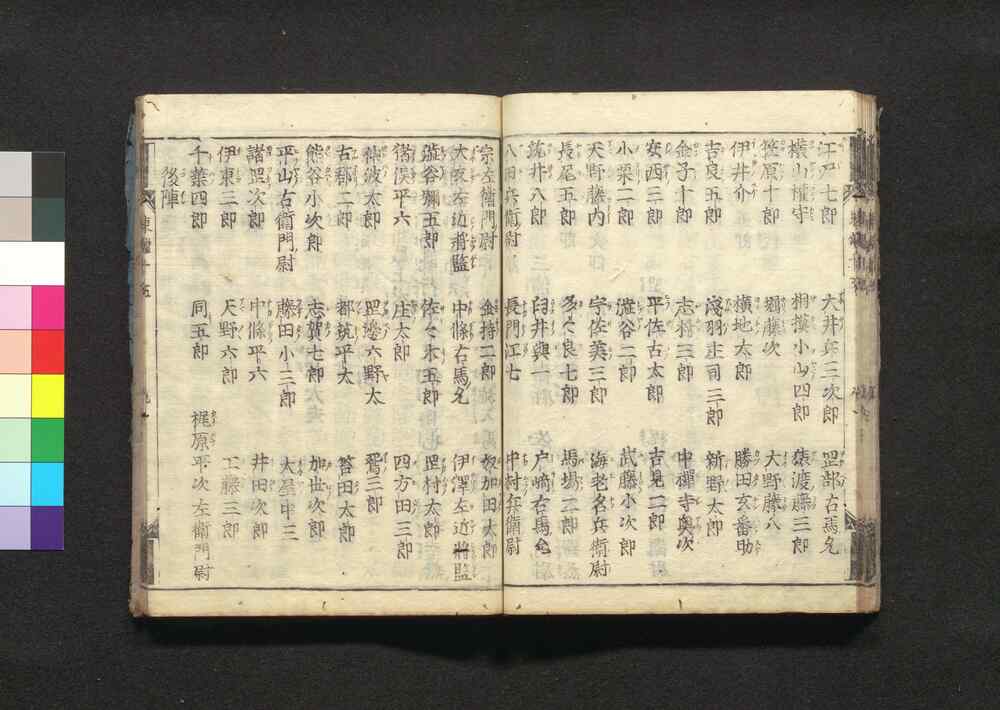 江戸七郎 大井兵三次郎 岡部右馬允
横山権守 相摸小山四郎 猿渡藤三郎
笠原十郎 堀藤次 大野藤八
伊井介 横地太郎 勝田玄番助
吉良五郎 浅羽庄司三郎 新野太郎
金子十郎 志村三郎 中禅寺奥次
安西三郎 平佐古太郎 吉見二郎
小栗二郎 渋谷二郎 武藤小次郎
天野藤内 宇佐美三郎 海老名兵衛尉
長尾五郎 多々良七郎 馬場二郎
筑井八郎 臼井與一 戸崎右馬允
八田兵衛尉 長門江七 中村兵衛尉
宗左衛門尉 金持二郎 奴加田太郎
大友左近将監 中條右馬允 伊澤左近将監
渋谷彌五郎 佐々木五郎 岡村太郎
猪俣平六 庄太郎 四方田三郎
仙波太郎 岡邊六野太 鴛三郎
古郡二郎 都筑平太 苔田太郎
熊谷小次郎 志賀七郎 加世次郎
平山右衛門尉 藤田小三郎 大屋中三
諸岡次郎 中條平六 井田次郎
伊東三郎 天野六郎 工藤三郎
千葉四郎 同五郎 梶原平次左衛門尉
後陣
東鑑十五